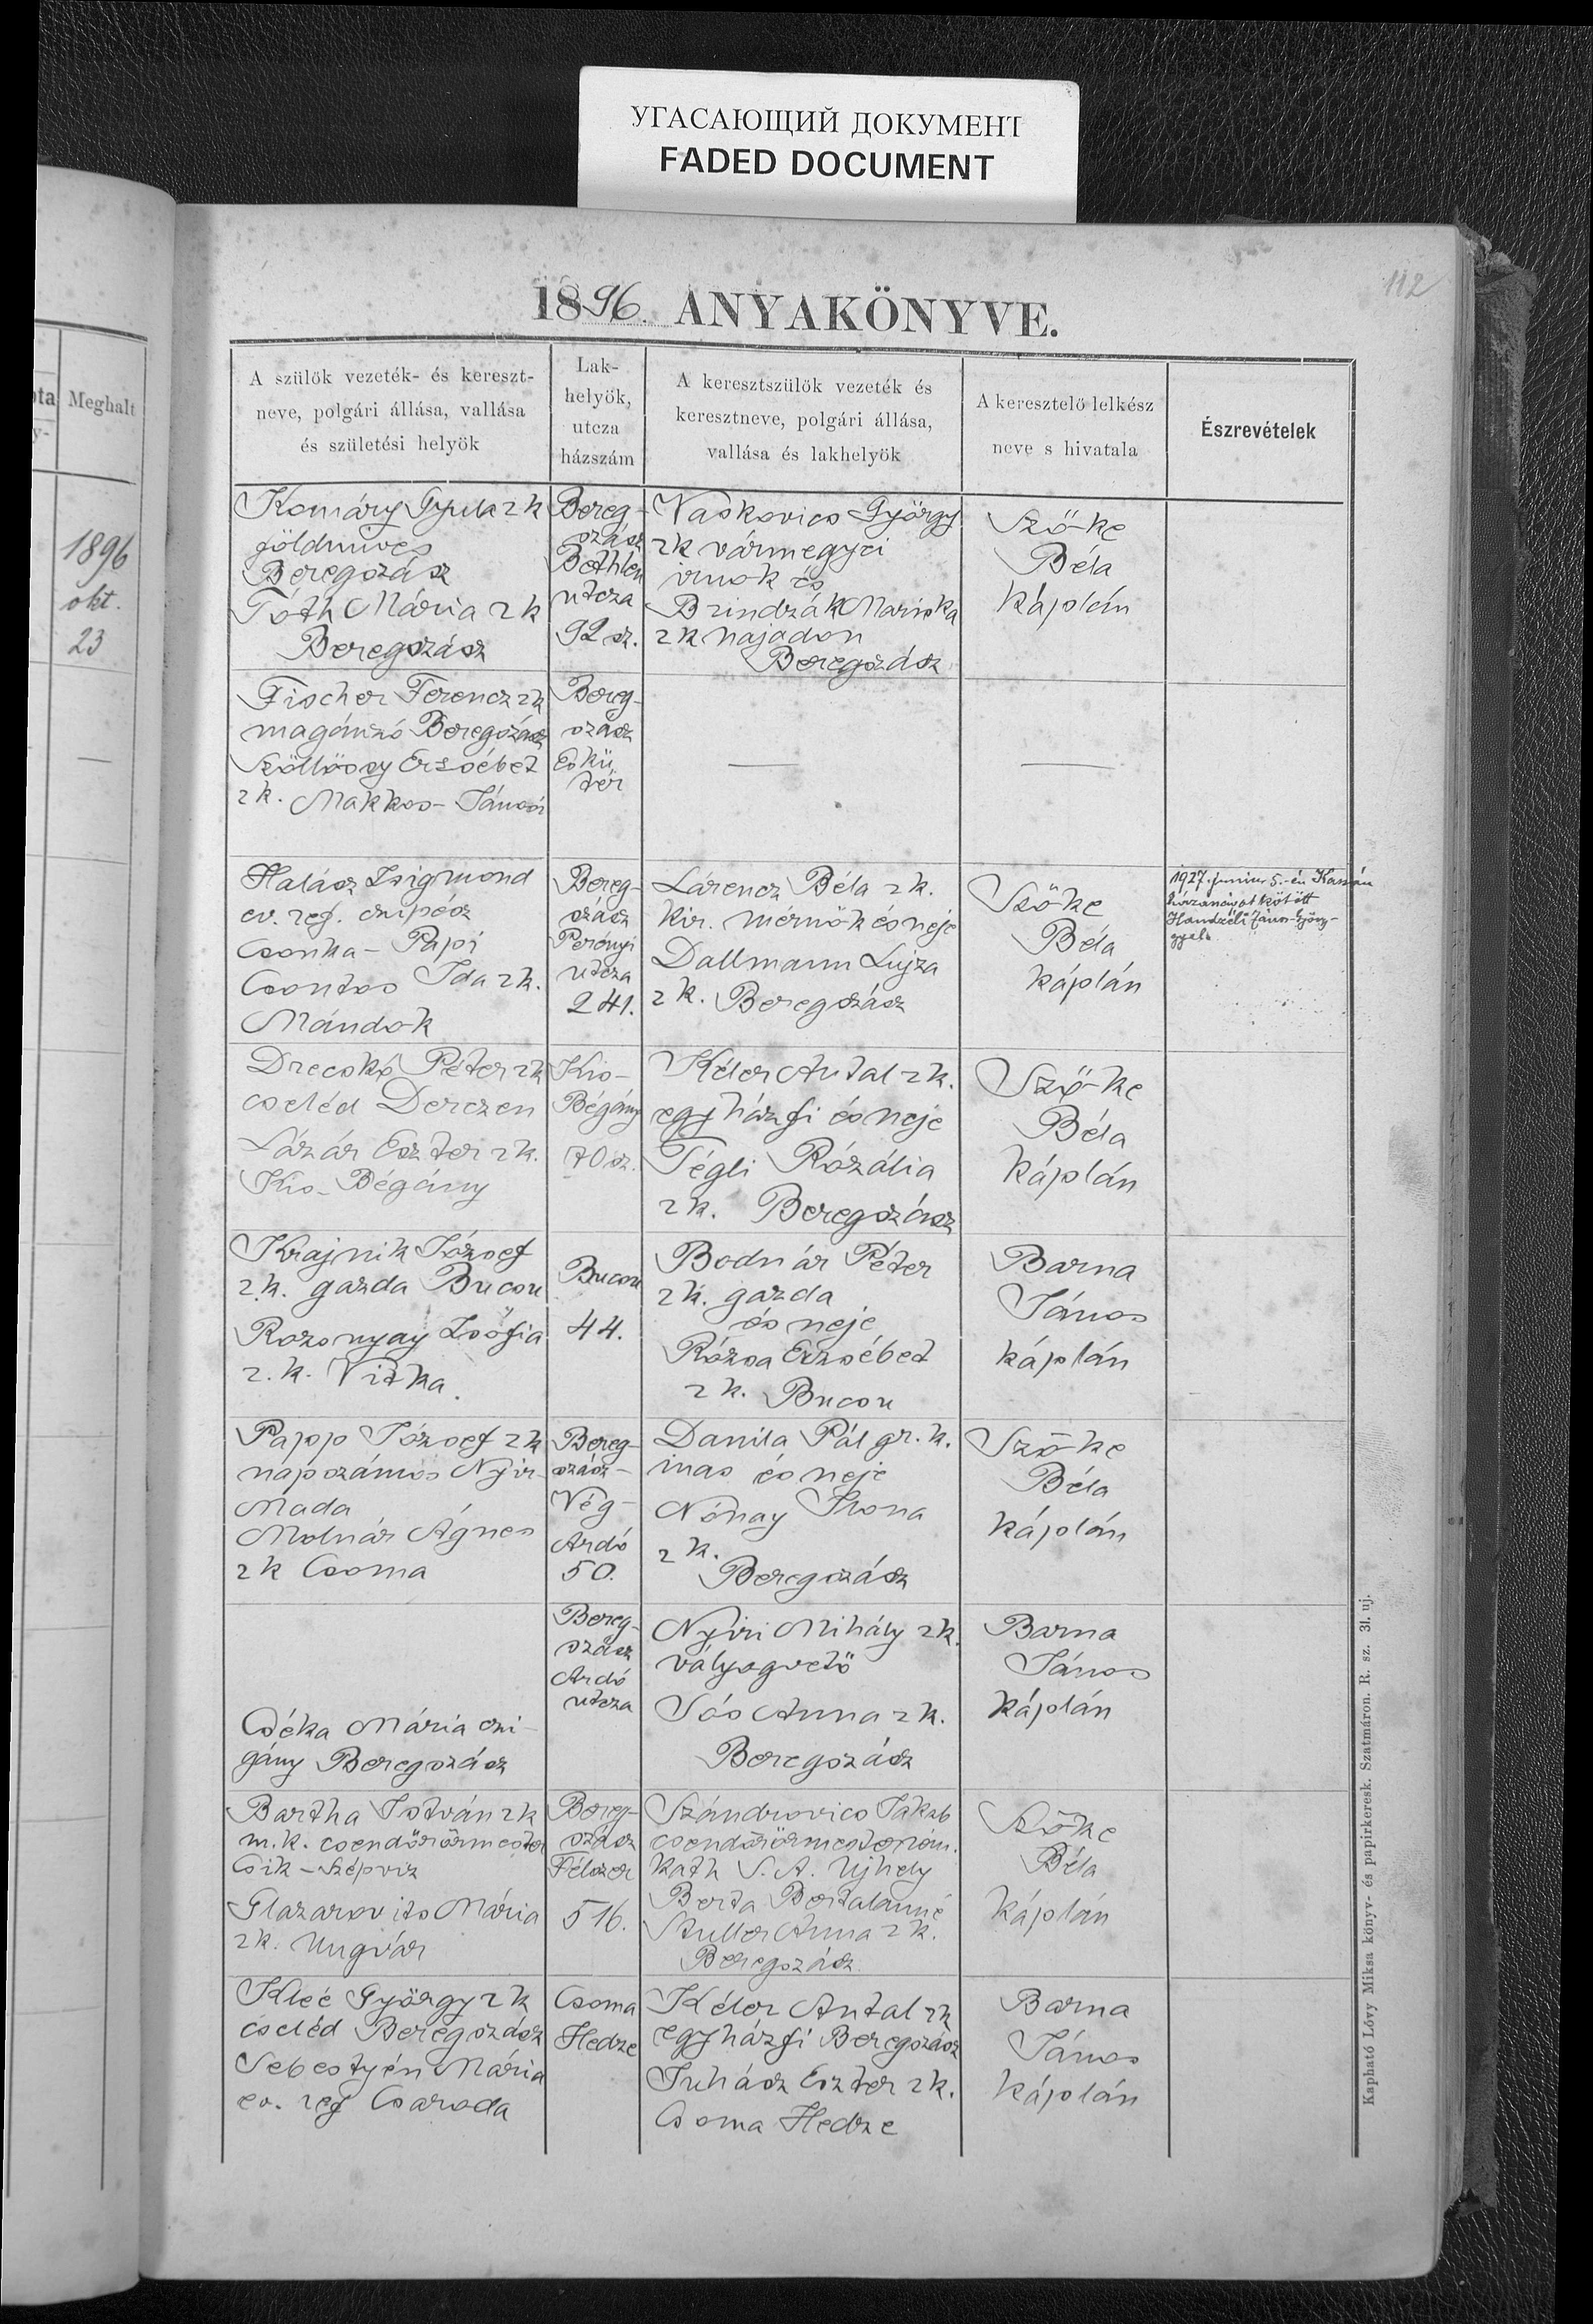 УГАСАЮЩИЙ ДОКУМЕНТ
FADED DOCUMENT
112
1896. ANYAKÖNYVE.
Meghalt
1896
okt.
23
A szülök vezeték- és kereszt-
neve, polgári állása, vallása
és születési helyök
Lak-
helyök,
utcza
házszám
A keresztszülök vezeték és
keresztneve, polgári állása,
vallása és lakhelyök
A keresztelő lelkész
neve s hivatala
Észrevételek
Komáry Gyula rk
földmuves
Beregszász
Tóth Mária rk
Beregszász
Bereg-
szász
Bethlen
utcza
92 sz.
Vaskovics György
rk vármegyei
irnok és
Brindzák Mariska
rk hajadon
Beregszász
Szőke
Béla
káplán
Fischer Ferencz rk
magánzó Beregszász
Szöllössy Erzsébet
rk. Makkos-Jánosi
Bereg-
szász
Eskü
tér
—
—
Halász Zsigmond
ev. ref. czipész
Csonka-Papi
Csontos Ida rk.
Mándok
Bereg-
szász
Perényi
utcza
241.
Lárencz Béla rk.
kir. mérnök és neje
Dallmann Lujza
rk. Beregszász
Szőke
Béla
káplán
1927. junius 5.-én Kassán
házasságot kötött
Handzéli János György-
gyel.
Drecskó Péter rk
cseléd Derczen
Lázár Eszter rk.
Kis-Bégány
Kis-
Bégány
70 sz.
Kéler Antal rk.
egyházfi és neje
Tégli Rózália
rk. Beregszász
Szőke
Béla
káplán
Krajnik József
rk. gazda Bucsu
Rozsnyay Zsófia
r.k. Vitka.
Bucsu
44.
Bodnár Péter
rk. gazda
és neje
Rózsa Erzsébet
rk. Bucsu
Barna
János
káplán
Papp József rk
napszámos Nyir-
Mada
Molnár Ágnes
rk Csoma
Bereg-
szász-
Vég-
Ardó
50.
Danila Pál gr. k.
inas és neje
Nónay Ilona
rk.
Beregszász
Szőke
Béla
káplán
Cséka Mária czi-
gány Beregszász
Bereg-
szász
Ardó
utcza
Nyiri Mihály rk.
vályogvető
Sós Anna rk.
Beregszász
Barna
János
káplán
Bartha István rk
m.k. csendőrőrmester
Csik-Szépviz
Glazarovits Mária
rk. Ungvár
Bereg-
szász
Félszer
516.
Szándrovics Jakab
csendőrőrmester róm.
kath S. A. Ujhely
Berta Bertalanné
Anna rk.
Beregszász
Szőke
Béla
káplán
Kleé György rk
cseléd Beregszász
Sebestyén Mária
ev. ref Csaroda
Csoma
Hedre
Kéler Antal rk
egyházfi Beregszász
Juhász Eszter rk.
Csoma Hedre
Barna
János
káplán
Kapható Lövy Miksa könyv- és papirkeresk. Szatmáron. R. sz. 3l. uj.